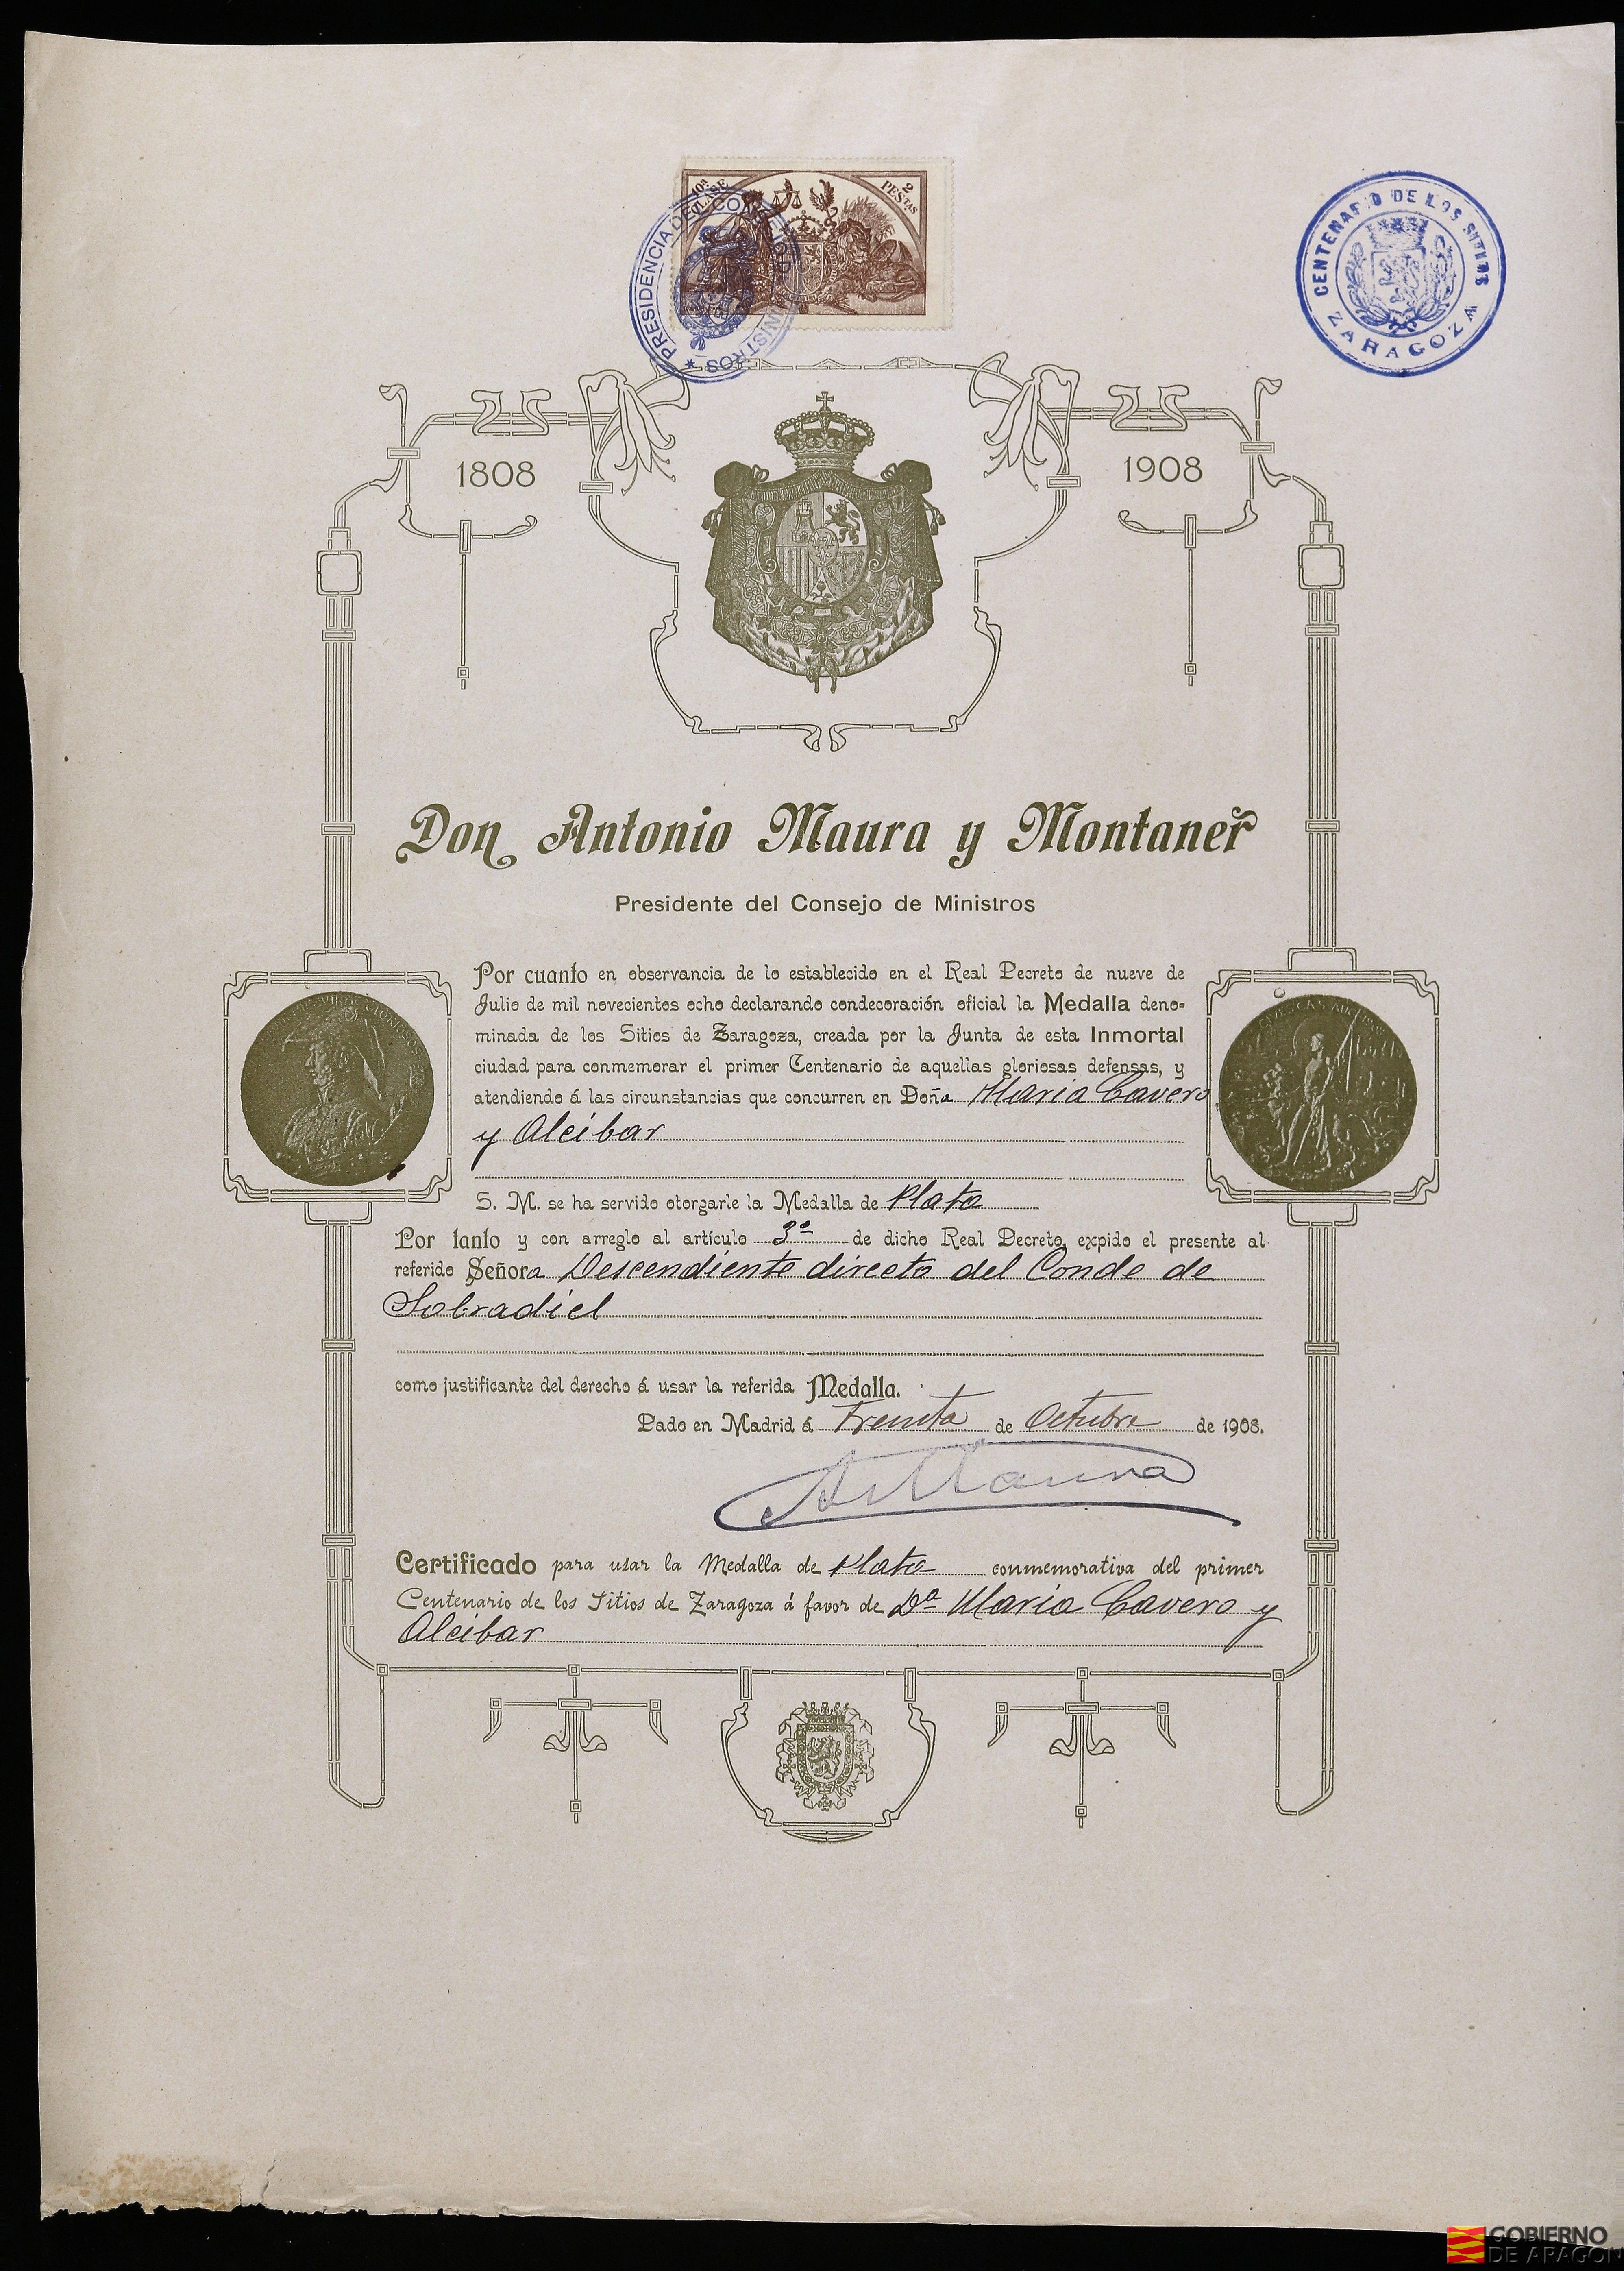 10ª CLASE
2 PESTAS
PRESIDENCIA DEL MINISTROS
CENTENARIO DE LOS SITIOS
ZARAGOZA
1808
1908
Don Antonio Maura y Montaner
Presidente del Consejo de Ministros
Por cuanto en observancia de lo establecido en el Real Decreto de nueve de
Julio de mil novecientos ocho declarando condecoración oficial la Medalla deno-
minada de los Sitios de Zaragoza, creada por la Junta de esta Inmortal
ciudad para conmemorar el primer Centenario de aquellas gloriosas defensas, y
atendiendo á las circunstancias que concurren en Doña Maria Cavero
y Alcibar
S. M. se ha servido otorgarle la Medalla de Plata
Por tanto y con arreglo al artículo 3º de dicho Real Decreto, expido el presente al
referido Señora Descendiente directo del Conde de
Sobradiel
como justificante del derecho á usar la referida Medalla.
Dado en Madrid á Treinta de Octubre de 1908.
A Maura
Certificado para usar la Medalla de Plata conmemorativa del primer
Centenario de los Sitios de Zaragoza á favor de Dª Maria Cavero y
Alcibar
GOBIERNO
DE ARAGON